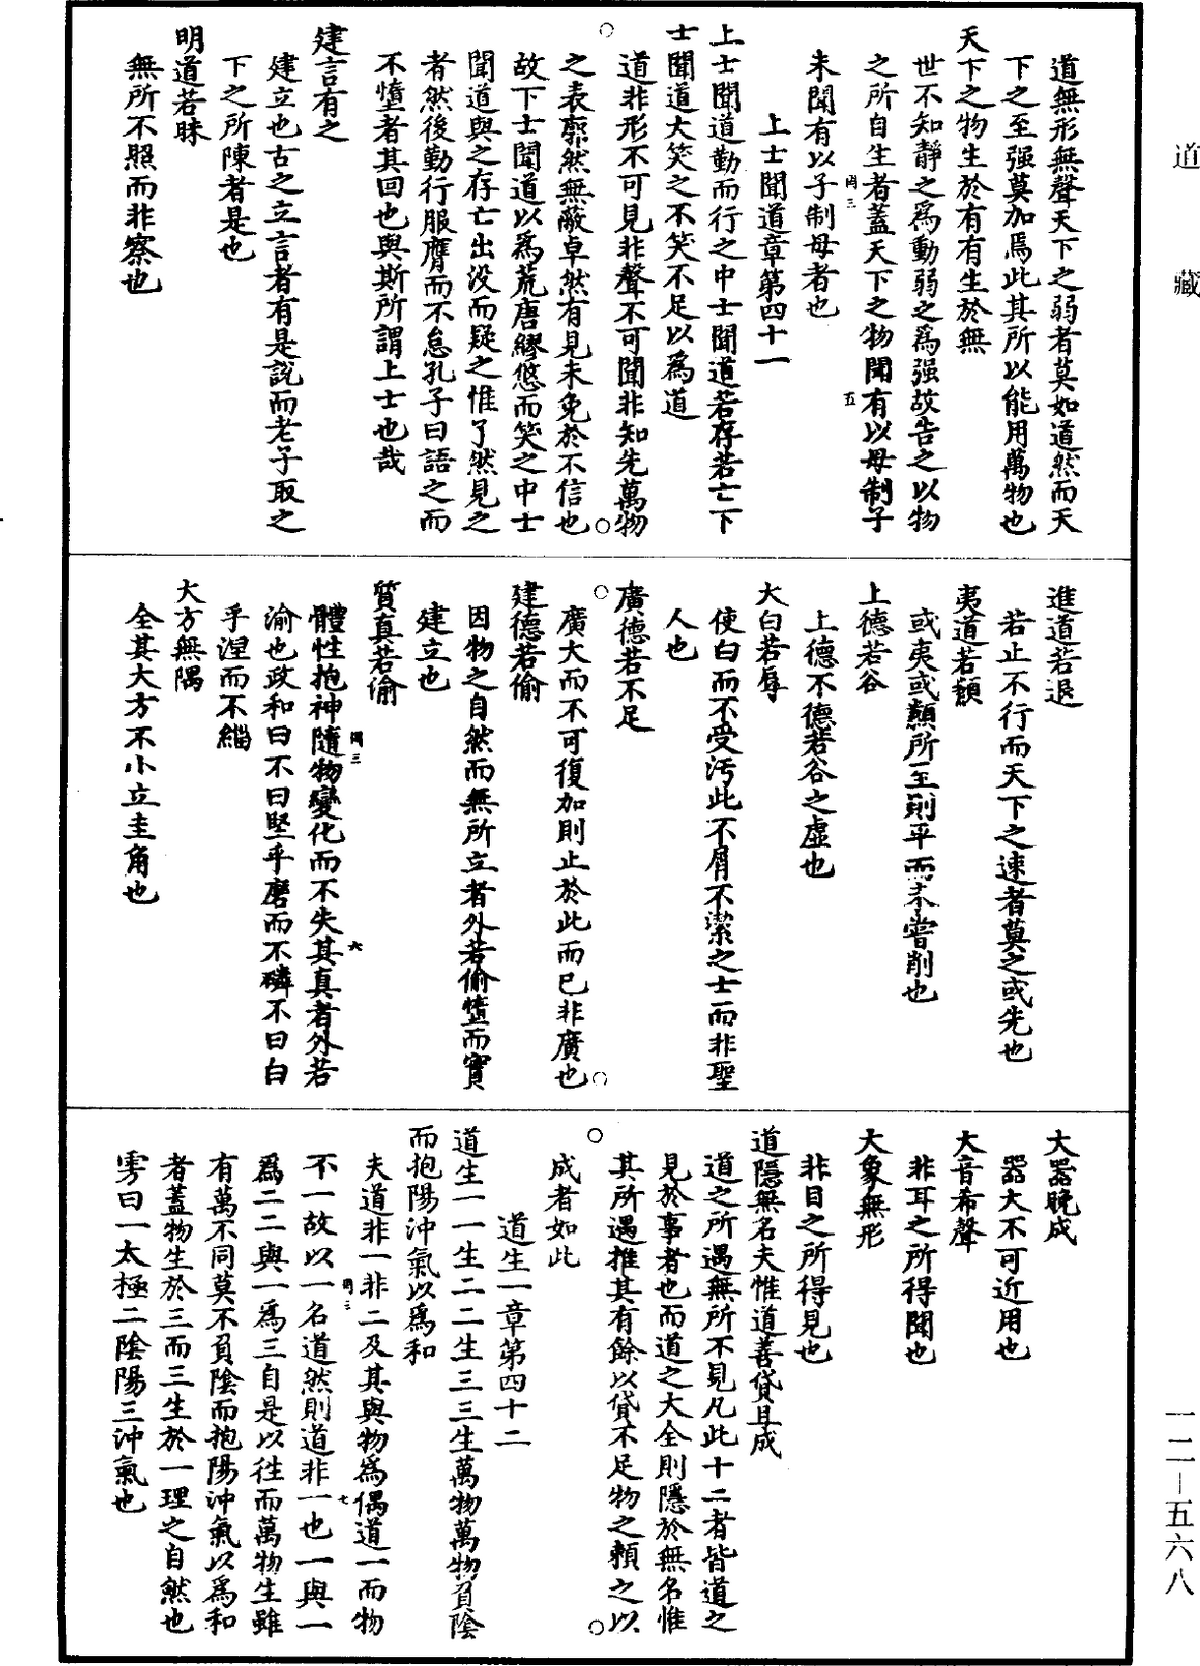 道藏
道無形無聲天下之弱者莫如道然而天
下之至强莫加焉此其所以能用萬物也
天下之物生於有有生於無
世不知靜之爲動弱之爲强故告之以物
之所自生者蓋天下之物聞有以母制子
罔三
五
未聞有以子制母者也
上士聞道章第四十一
上士聞道勤而行之中士聞道若存若亡下
士聞道大笑之不笑不足以爲道
道非形不可見非聲不可聞非知先萬物
之表廓然無敵卓然有見未免於不信也
故下士聞道以爲荒唐繆悠而笑之中士
聞道與之存亡出没而疑之惟了然見之
者然後勤行服膺而不怠孔子曰語之而
不憻者其回也與斯所謂上士也哉
建言有之
建立也古之立言者有是說而老子取之
下之所陳者是也
明道若昧
無所不照而非察也
進道若退
若止不行而天下之速者莫之或先也
夷道若纇
或夷或纇所至則平而未嘗削也
上德若谷
上德不德若谷之虛也
大白若辱
使白而不受汚此不屑不潔之士而非聖
人也
廣德若不足
廣大而不可復加則止於此而已非廣也
建德若偷
因物之自然而無所立者外若偷憻而實
建立也
質真若渝
體性抱神隨物變化而不失其真者外若
罔三
六
渝也政和曰不曰堅乎磨而不磷不曰白
乎涅而不緇
大方無隅
全其大方不小立圭角也
大器晚成
器大不可近用也
大音希聲
非耳之所得聞也
大象無形
非目之所得見也
道隱無名夫惟道善貸且成
道之所遇無所不見凡此十二者皆道之
見於事者也而道之大全則隱於無名惟
其所遇推其有餘以貸不足物之賴之以
成者如此
道生一章第四十二
道生一一生二二生三三生萬物萬物負陰
而抱陽沖氣以爲和
夫道非一非二及其與物爲偶道一而物
不一故以一名道然則道非一也一與一
罔三
七
爲二二與一爲三自是以往而萬物生雖
有萬不同莫不負陰而抱陽沖氣以爲和
者蓋物生於三而三生於一理之自然也
雱曰一太極二陰陽三沖氣也
一二–五六八